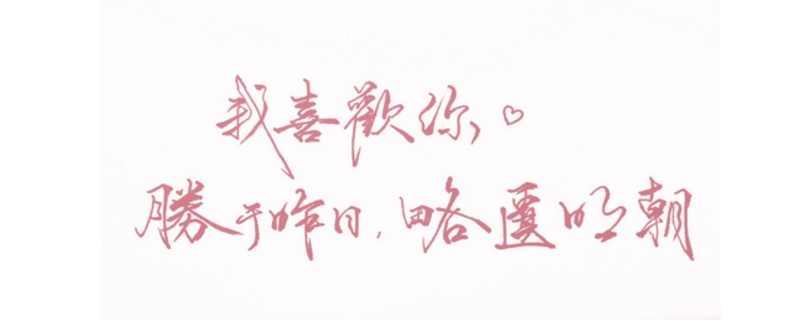 我喜歡你♡
勝于昨日,略匱明朝